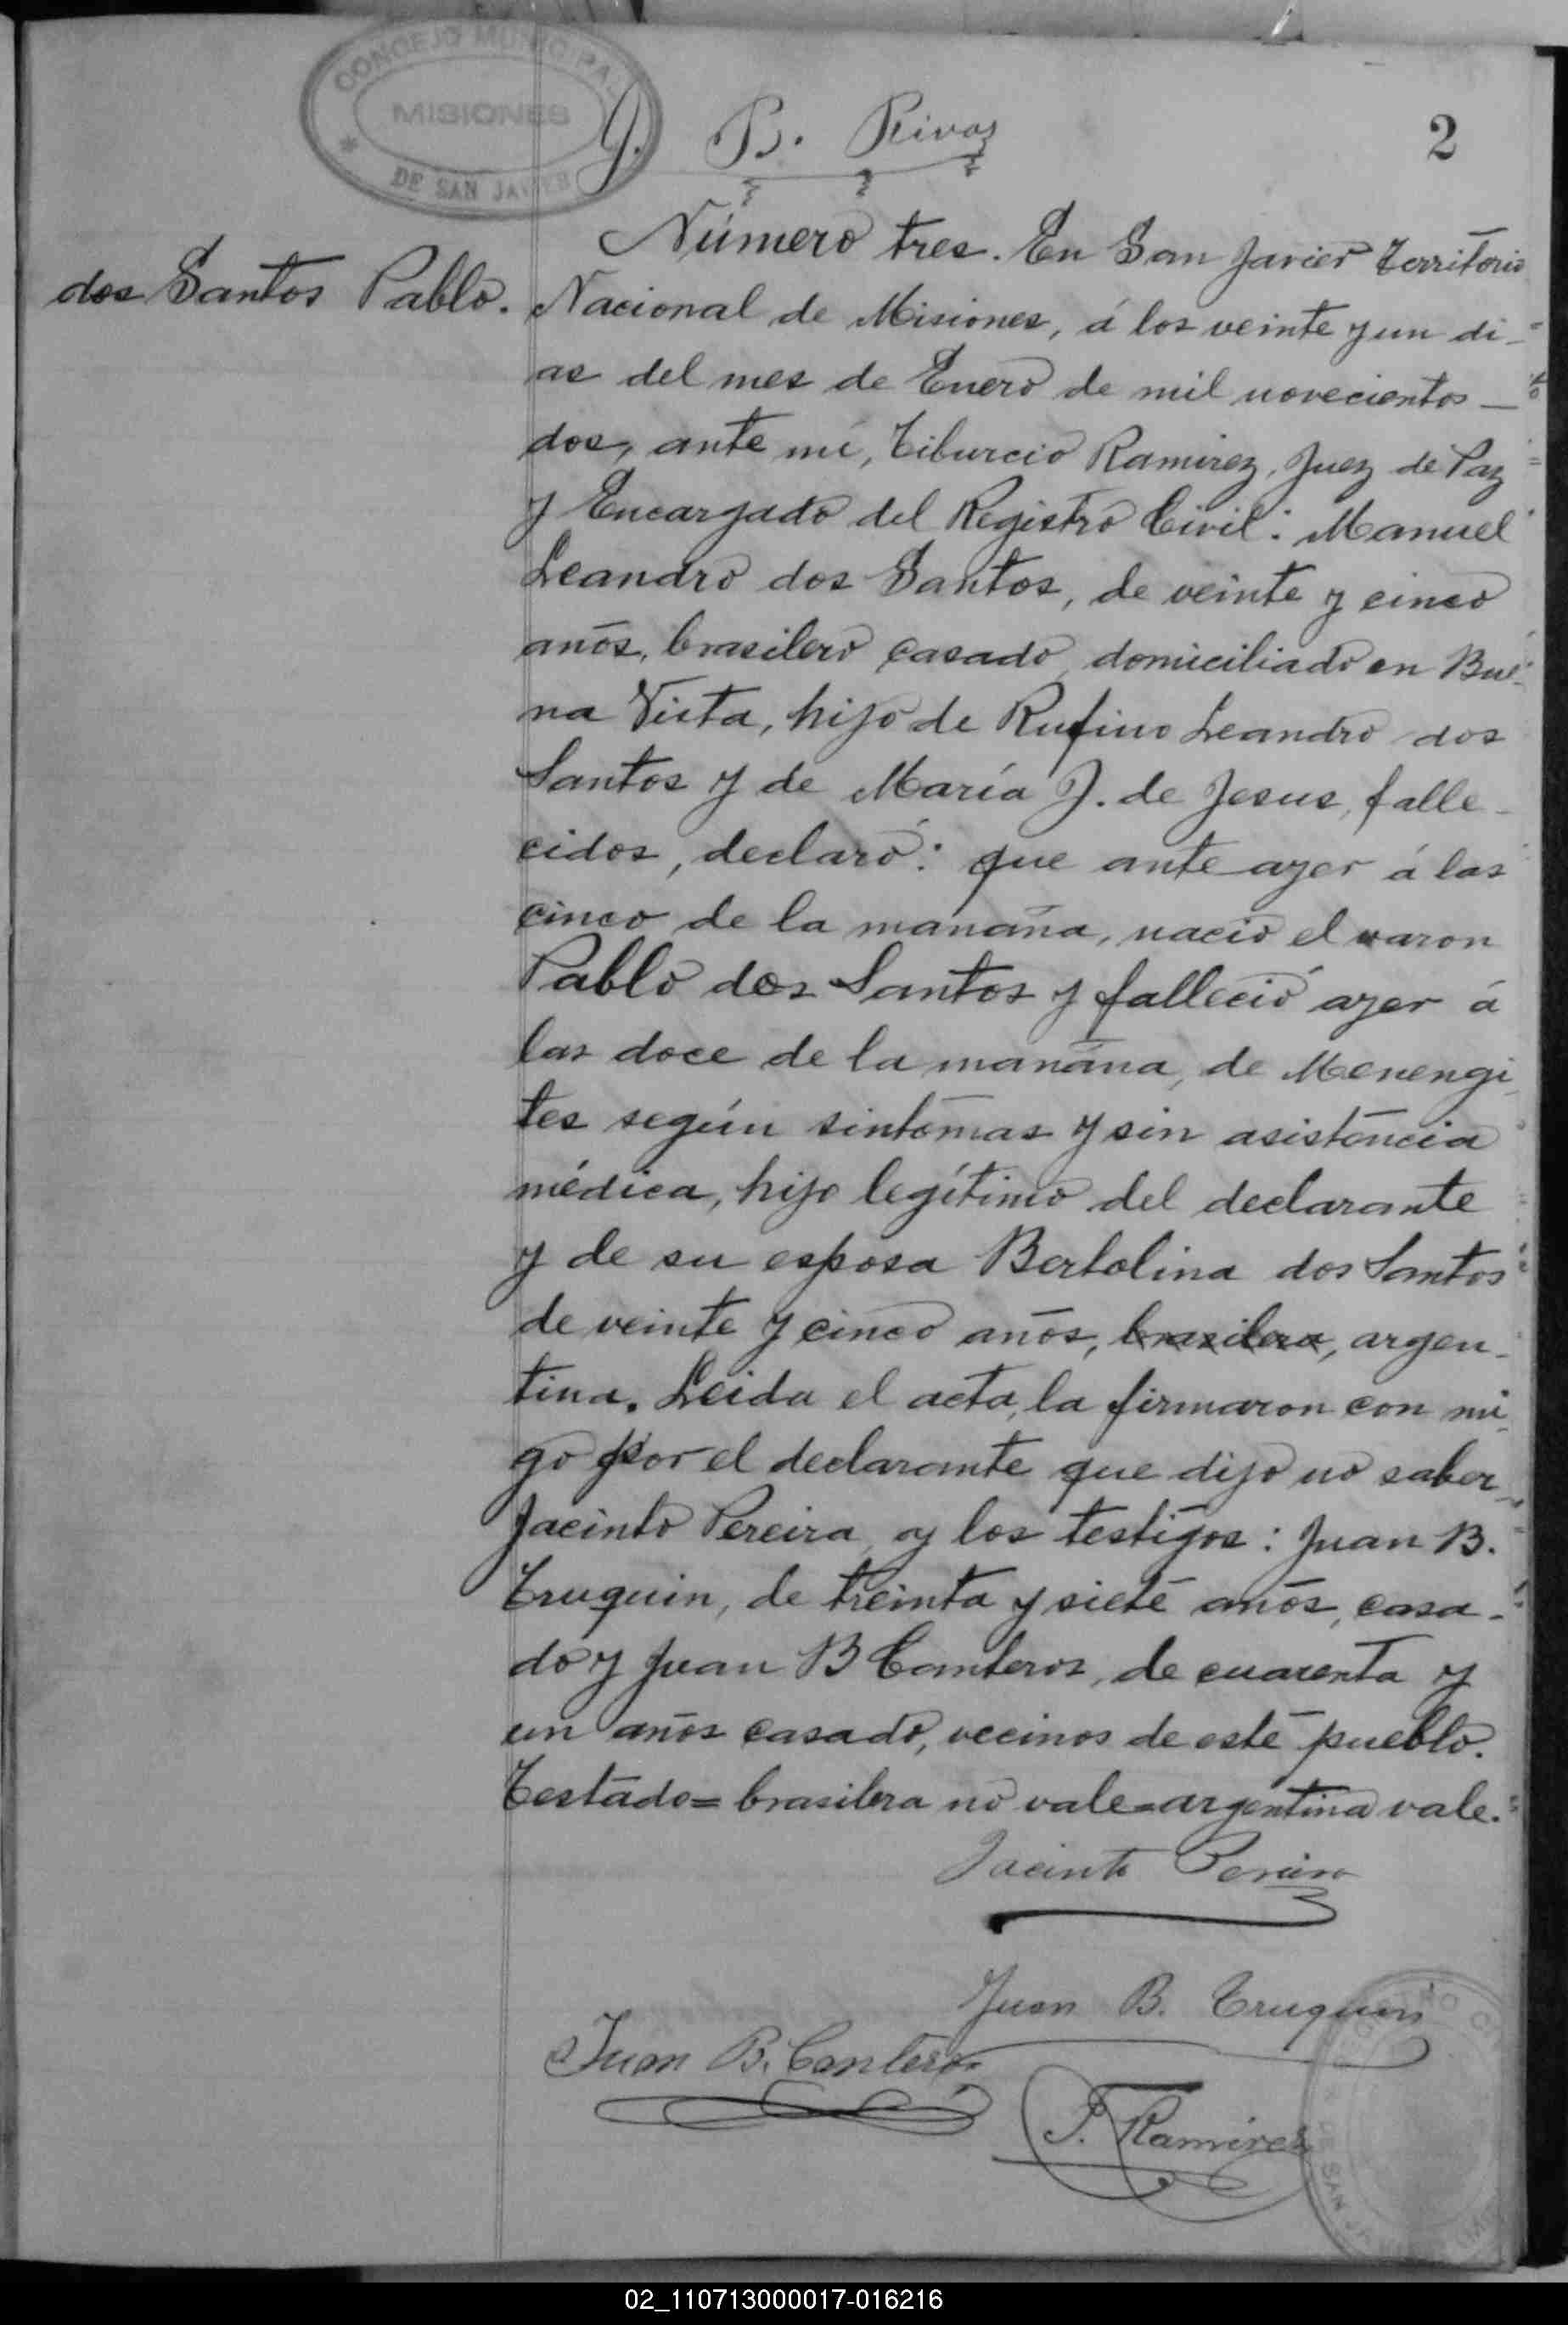 CONCEJO MUNICIPAL
MISIONES
DE SAN JAVIER
J. B. Rivas
2
dos Santos Pablo.
Número tres. En San Javier Territorio
Nacional de Misiones, á los veinte y un di-
as del mes de Enero de mil novecientos —
dos, ante mí, Tiburcio Ramirez, Juez de Paz
y Encargado del Registro Civil: Manuel
Leandro dos Santos, de veinte y cinco
años, brasilero casado, domiciliado en Bue-
na Vista, hijo de Rufino Leandro dos
Santos y de María J. de Jesus, falle-
cidos, declaró: que ante ayer á las
cinco de la mañana, nació el varon
Pablo dos Santos y falleció ayer á
las doce de la mañana, de Menengi
tes según sintomas y sin asistencia
médica, hijo legítimo del declarante
y de su esposa Bertolina dos Santos
de veinte y cinco años, brasilera, argen-
tina. Leida el acta, la firmaron con mi
go por el declarante que dijo no saber
Jacinto Pereira, y los testigos: Juan B.
Truquin, de treinta y siete años, casa-
do y Juan B Canteros, de cuarenta y
un años casado, vecinos de este pueblo.
Testado= brasilera no vale=argentina vale.
Jacinto Pereira
Juan B. Truquin
Juan B. Canteros
T. Ramirez
DE SAN JAVIER
02_110713000017-016216